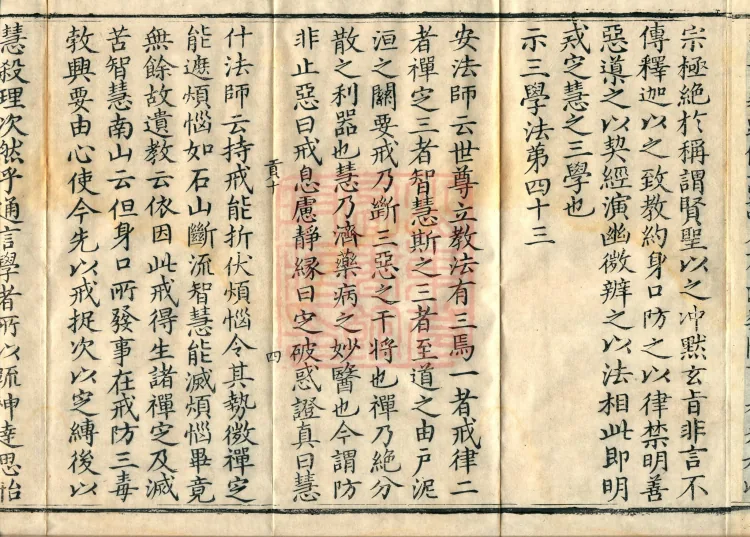 宗極絶於稱謂賢聖以之冲黙玄旨非言不
傳釋迦以之致教約身口防之以律禁明善
惡導之以契經演幽微辨之以法相此即明
戒定慧之三學也
示三學法第四十三
安法師云世尊立教法有三焉一者戒律二
者禪定三者智慧斯之三者至道之由戸泥
洹之關要戒乃斷三惡之干將也禪乃絶分
散之利器也慧乃濟藥病之妙醫也今謂防
非止惡曰戒息慮靜縁曰定破惑證真曰慧
貢十 四
什法師云持戒能折伏煩惱令其勢微禪定
能遮煩惱如石山斷流智慧能滅煩惱畢竟
無餘故遺教云依因此戒得生諸禪定及滅
苦智慧南山云但身口所發事在戒防三毒
敎興要由心使今先以戒捉次以定縛後以
慧殺理次然乎通言學者所以疏神達思怡